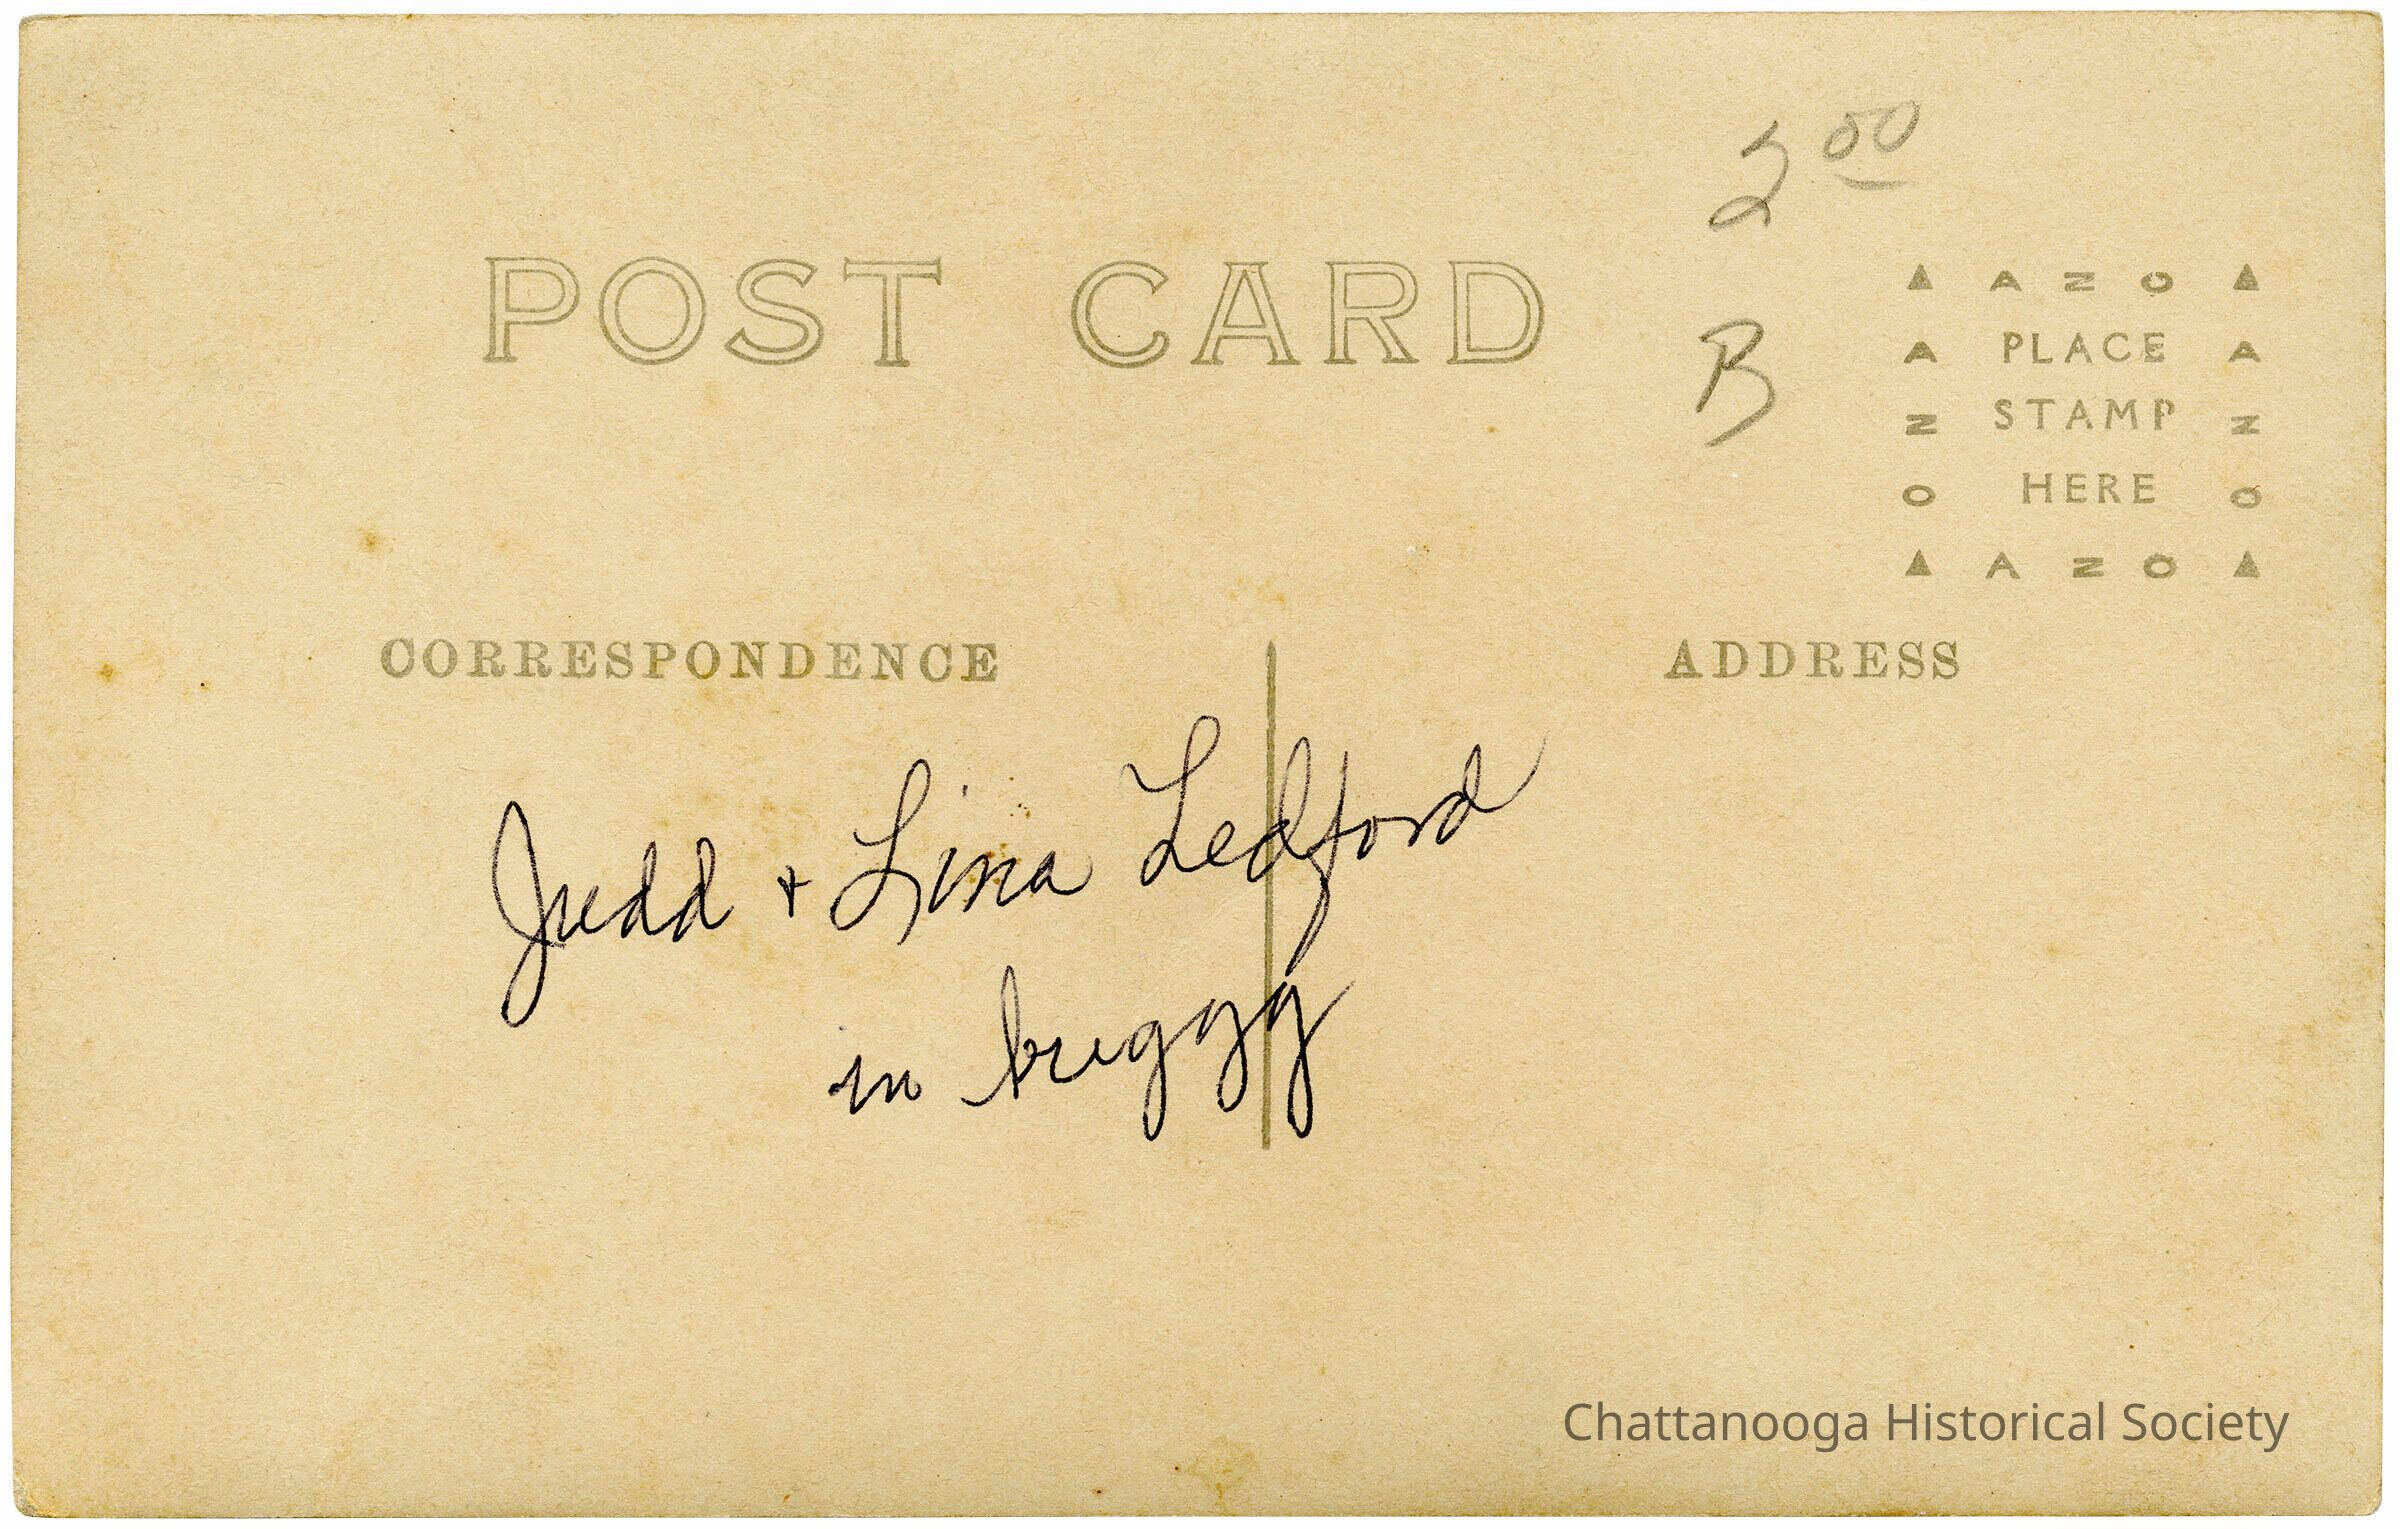 2 00
POST CARD
B
▲ A N O ▲
A PLACE A
N STAMP N
O HERE O
▲ A N O ▲
CORRESPONDENCE ADDRESS
Judd + Lina Ledford
in buggy
Chattanooga Historical Society